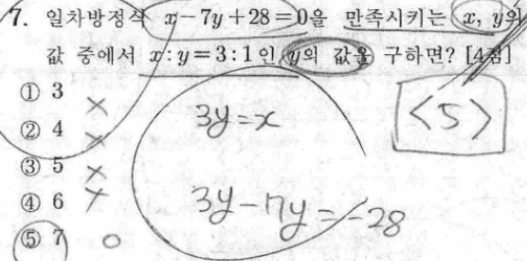 7. 일차방정식 x-7y+28=0을 만족시키는 x, y의
값 중에서 x:y=3:1인 y의 값을 구하면? [4점]
① 3 ×
② 4 ×
③ 5 ×
④ 6 ×
⑤ 7 ○
3y=x
<5>
3y-7y=-28